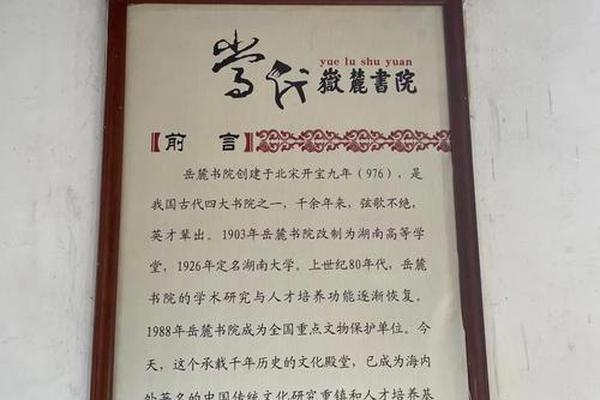 當代
yue lu shu yuan
嶽麓書院
【前 言】
岳麓书院创建于北宋开宝九年（976），是
我国古代四大书院之一，千余年来，弦歌不绝，
英才辈出。1903年岳麓书院改制为湖南高等学
堂，1926年定名湖南大学。上世纪80年代，岳麓
书院的学术研究与人才培养功能逐渐恢复。
1988年岳麓书院成为全国重点文物保护单位。今
天，这个承载千年历史的文化殿堂，已成为海内
外著名的中国传统文化研究重镇和人才培养基